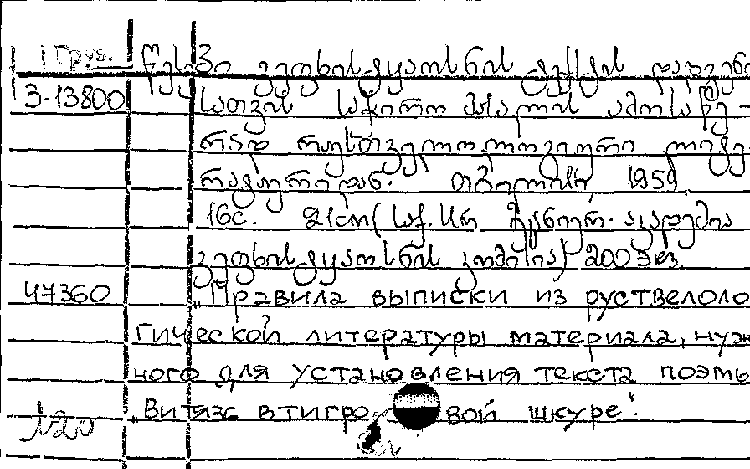 Груз. წესები ვეფხისტყაოსნის ტექსტის დადგენი
3-13800 სათვის საჭირო მასალის ამოსაწე-
რად რუსთველოლოგიური ლიტე-
რატურიდან. თბილისი, 1959.
16с. 21см (საქ. სსრ მეცნიერ. აკადემია
ვეფხისტყაოსნის კომისია) 200 экз.
47360 "Правила выписки из руствелоло
гической литературы материала, нуж
ного для установления текста поэмы
"Витязь в тигровой шкуре".
120